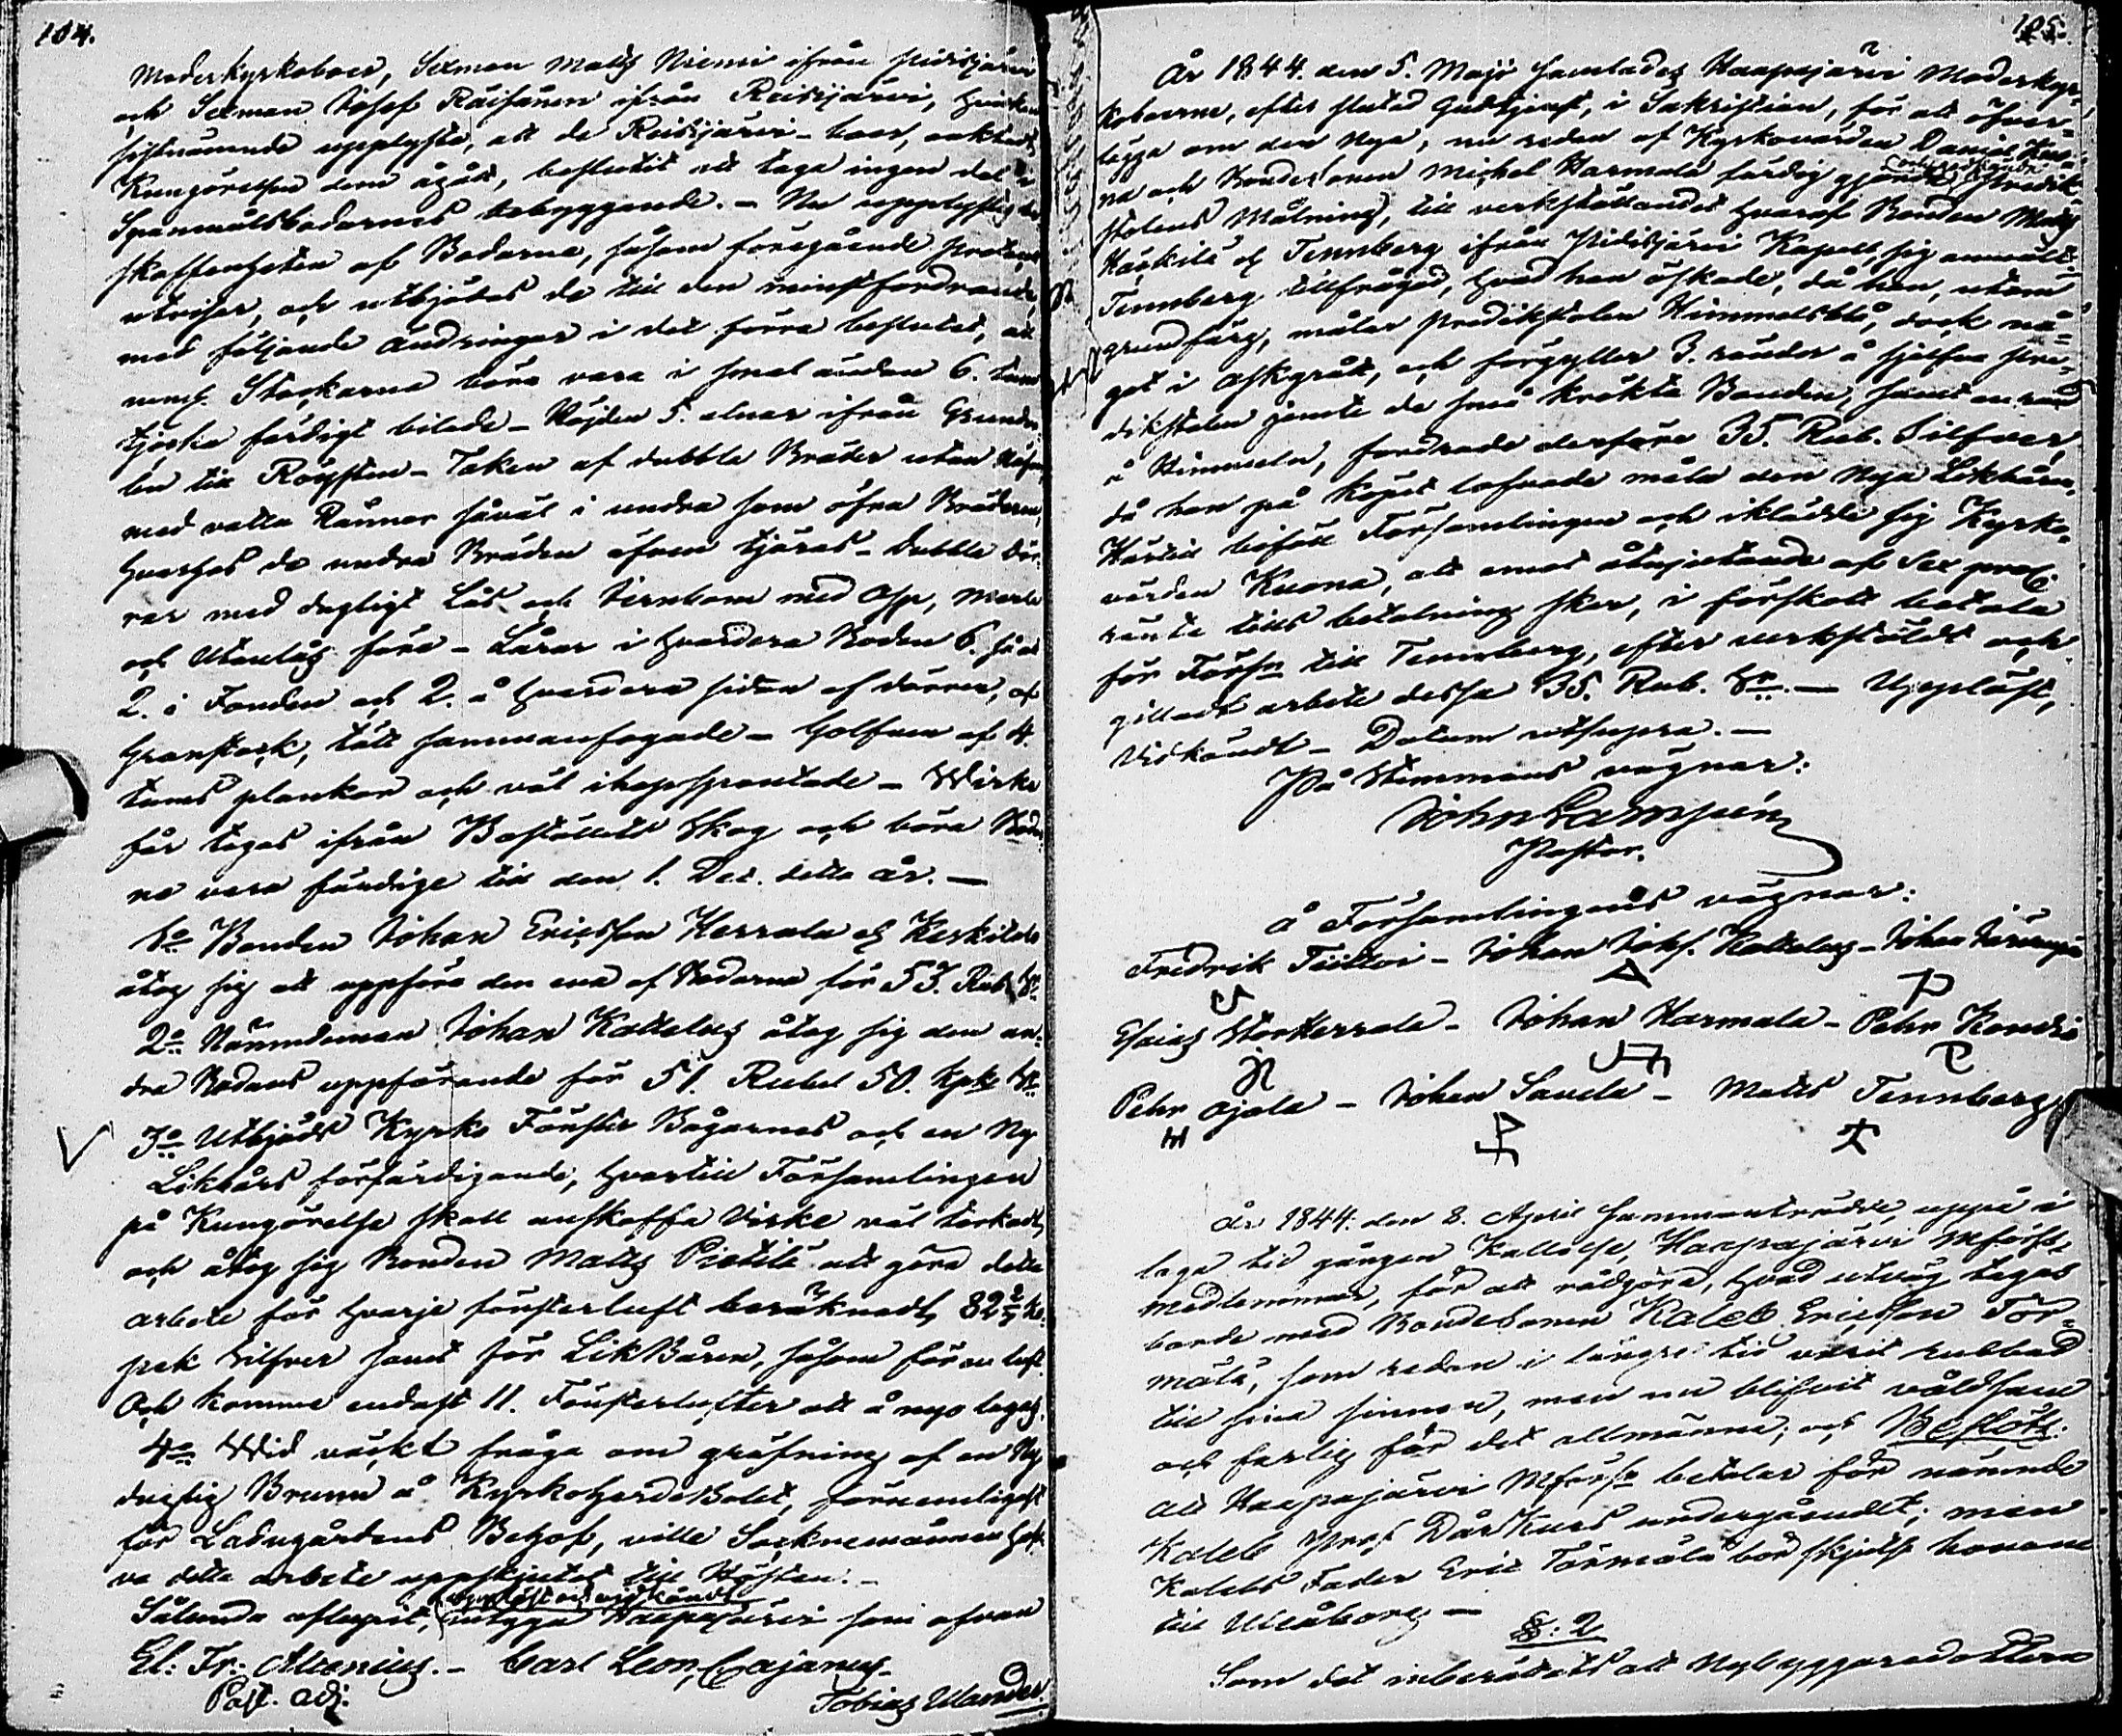 104.
Moderkyrkoboer, Sexman Matts Niemi ifrån Pidisjärvi
och Sexman Josef Räisänen ifrån Reisjärvi, hvilken
sistnämnde upplyste, att de Reisjärvi-boer, oaktadt
Kungörelsen derom ägadt, beslutit att taga ingen del i
Spanmålsbodarnes bebyggande. – Nu upplystes be-
skaffenheten af Bodarna, såsom föregående Protocoll
utviser, och utbjödos de till den minstfordrande,
med följande ändringar i det förra beslutet, att
neml. Stockarna böra vara i smal ändan 6. tum
tjocka färdigt bilade – Höjden 5. alnar ifrån Grunden
till Röysten – Taken af dubbla Bräder utan Näfver,
med valla Rännor såväl i undra som öfra Bräderne,
hvarhos de undra Bräden äfven tjäras – Dubbla Dör-
rar med dugligt Lås och Jernbom med Asp, Merla
och Utanlås före – Lårar i hvardera Boden 6. så at
2. i Fonden och 2. å hvardera sidan af dörren, af
Granstock, tätt sammanfogade – Golfven af 4.
tums plankor och väl ihopspontade – Wirke
får tagas ifrån Boställets Skog och böra Bodar-
na vara färdige till den 1. Dec. detta år. —
1o Bonden Johan Ericsson Herrala el. Keskitalo
åtog sig att uppföra den ena af Bodarna för 53. Rub. Sr
2o Nämndeman Johan Kattelus åtog sig den an-
dra Bodans uppförande för 51. Rubel 50. Kpk Sr
3o Utbjöds Kyrko Fönster Bågarnes och en Ny
Likbårs förfärdigande, hvartill Församlingen
på Kungörelse skall anskaffa Virke väl torkadt,
och åtog sig Bonden Matts Pietilä att göra detta
arbete för hvarje fönsterluft beräknadt, 82 2/7 Ko-
pek Silfver samt för LikBåren, såsom för en luft.
Och komma endast 11. Fönsterlufter att å nyo lagas.
4o Wid väckt fråga om gräfning af en Ny
dugtig Brunn å KyrkoherdeBolet, förnemligast
för Ladugårdens Behof, ville Socknemännen haf-
va detta arbete uppskjutet till Hösten. –
Upplöst och vidkändt
Sålunda aflupit, intyga Haapajärvi som ofvan
El: Fr: Alcenius. – Carl Leon, Cajanus
Past. adj. Tobias Ulander.
105.
År 1844. den 5. Maji samlades Haapajärvi Moderkyr-
koboerne, efter slutad Gudstjenst, i Sakristian, för att öfver-
lägga om den Nya, nu redan af Kyrkovärden Daniel Kuo-
na och Bondesonen Michel Harmala färdig gjorda Predik-
stolens Målning, till verkställandet hvaraf Bonden Matts
Häckilä el. Tennberg ifrån Pidisjärvi Kapell, sig anmält.
Tennberg tillfrågad, hvad han äskade, då han, utom
grundfärg, målar predikstolen Himmelsblå, dock nå-
got i askgrått, och förgyller 3. ränder å sjelfva Pre-
dikstolen jemte de små krökta Banden, samt en rand
å Himmeln, fordrade derföre 35. Rub. Silfver,
då han på köpet lofvade måla den Nya Likbåren.
Härtill biföll Församlingen och iklädde sig Kyrko-
värden Kuona, att emot åtnjutande af Sex proc.
ränta tills betalning sker, i förskott betala
för Förs:n till Tennberg, efter verkställdt och
gilladt arbete dessa 35. Rub. Sr. — Uppläst,
Vidkändt – Datum utsupra. —
På Stemmans vägnar:
Johan Lampén
Pastor.
å Församlingens vägnar:
Fredrik Tiitto – Johan Johs. Kattelus – Johan
Esaias StorHerrala – Johan Harmala – Pehr
Pehr Ojala – Johan Savela – Matts Tennberg
År 1844. den 8. April sammanträdde, uppå i
laga tid gången Kallelse, Haapajärvi Mförs.
medlemmar, för att rådgöra, hvad utväg tagas
borde med Bondesonen Kaleb Ericsson Tör-
mälä, som redan i längre tid varit rubbad
till sina sinnen, men nu blifvit våldsam
och farlig för det allmänna; och Beslöts
att Haapajärvi Mförs:n betalar för nämnde
Kaleb Pros DårKurs undergåendet; men
Kalebs Fader Eric Törmälä bör skjutsa honom
till Uleåborg –
§: 2
Som det inberättats att Nybyggaredottern